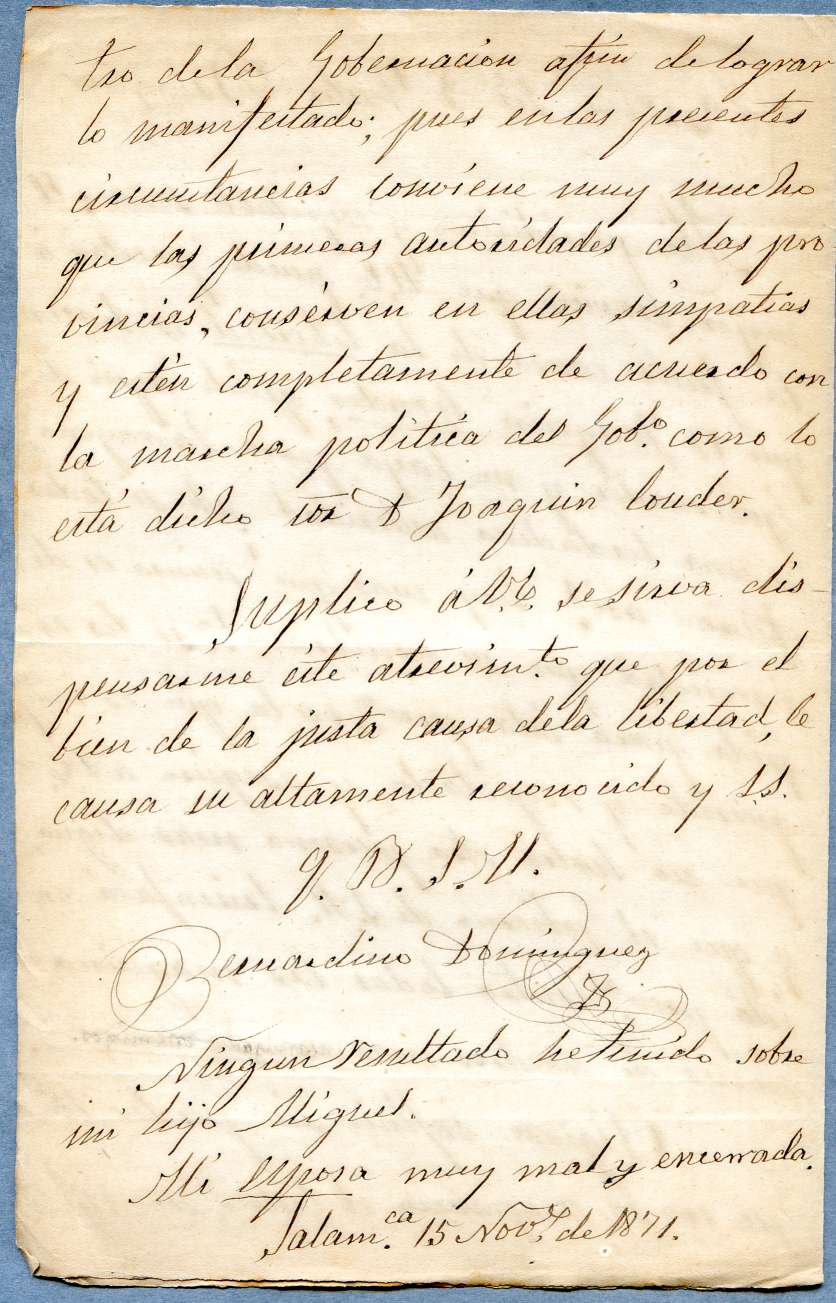 tro de la Gobernacion afin de lograr
lo manifestado; pues en las presentes
circumstancias conviene muy mucho
que las primeras autoridades de las pro
vincias, consérven en ellas, simpatias
y estén completamente de acuerdo con
la marcha politica del Gob.o como lo
está dicho Sor D Joaquin Couder.
Suplico á V.E. se sirva dis-
pensarme éste atrevim.to que por el
bien de la justa causa dela libertad, le
causa su altamente reconocido y S.S.
q. B. S. M.
Bernardino Dominguez
Ningun resultado he tenido sobre
mi hijo Miguel.
Mi Esposa muy mal y encerrada.
Salam.ca 15 Nov.e de 1871.